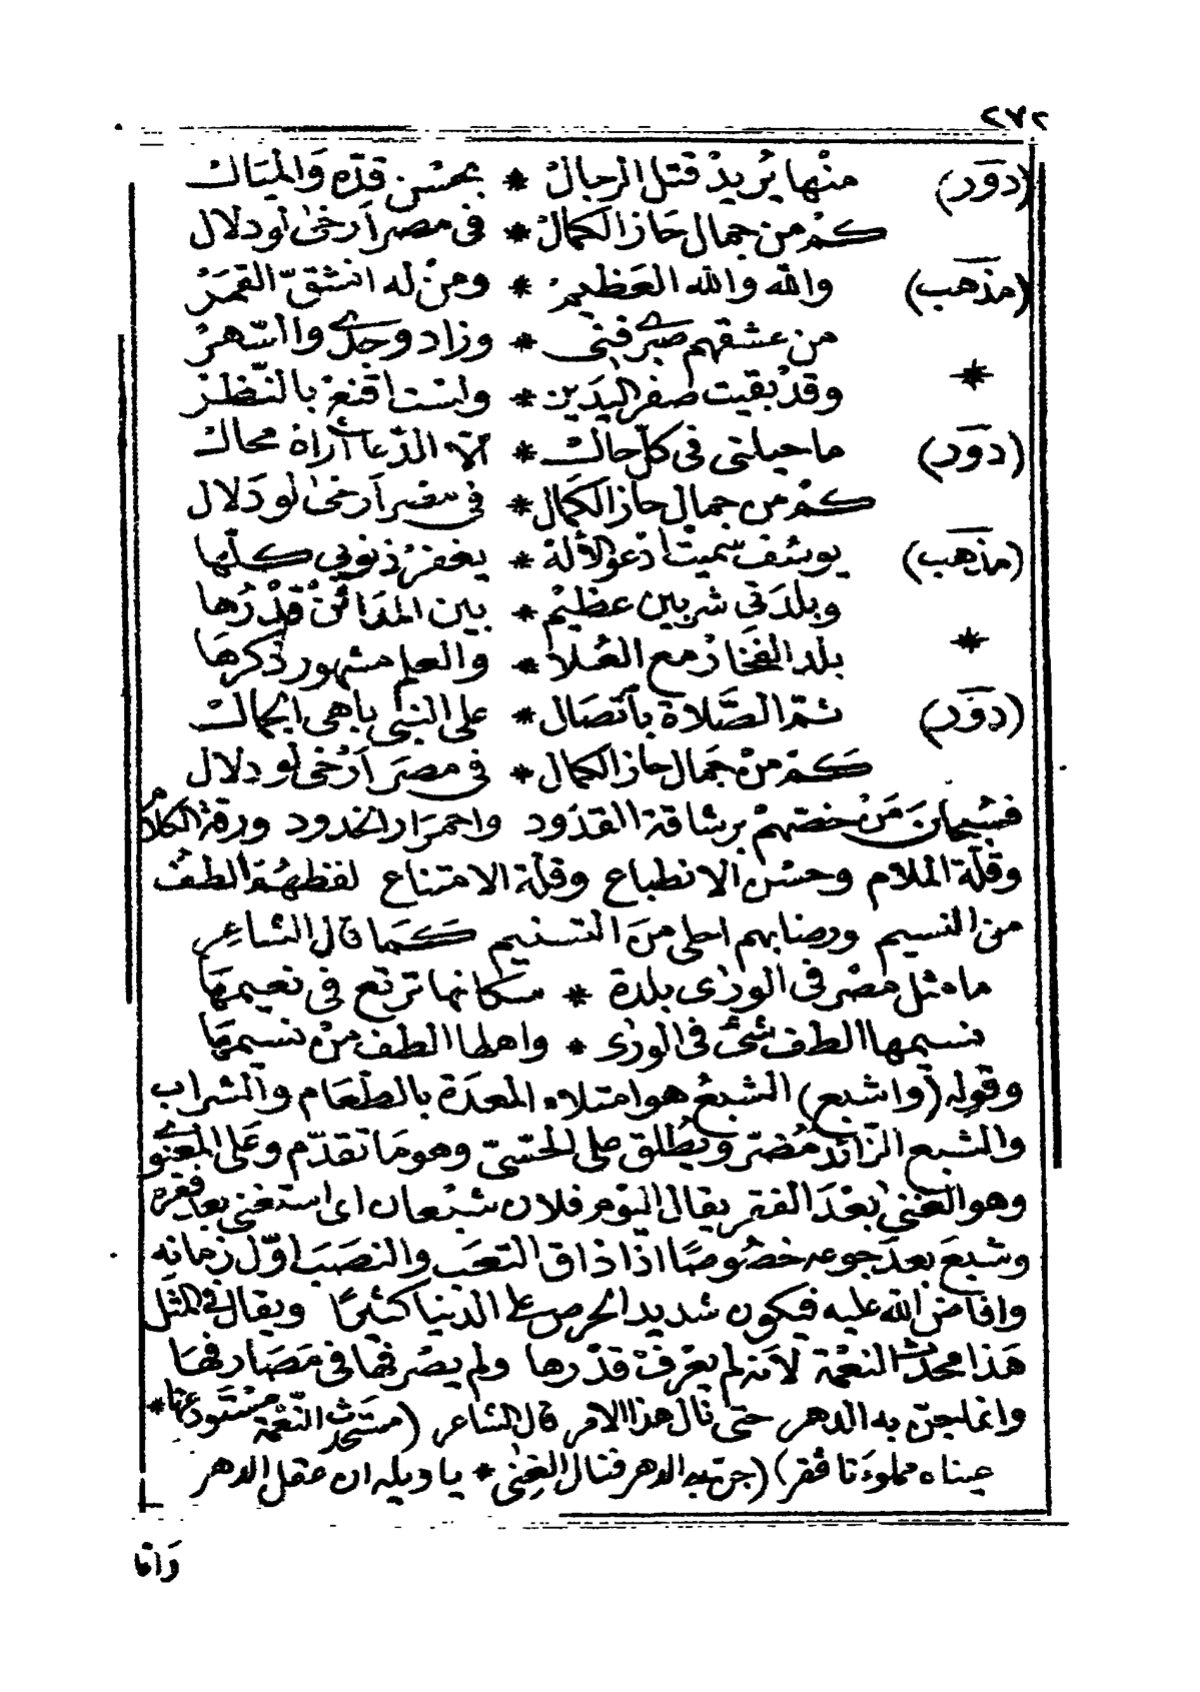 ٢٧٢
(دَوَر) منْها يُريدْ قتل الرجالْ * بحُسْن قدّه وَالميَالْ
كمْ من جمال حَاز الكَمالْ * فى مصر أرخىٰ لو دلال
(مذهب) والله والله العَظيمْ * ومنْ له انشقّ القمَرْ
من عشقهم صبرى فنى * وزاد وجدى والسّهرْ
* وقدْ بقيت صفر اليَدَين * ولست اقنعْ بالنّظرْ
(دَوَر) ما حيلتى فى كلّ حالْ * الّا الدّعا أراهْ محالْ
كمْ من جمال حاز الكَمال * فى مصر أرخىٰ لو دَلال
(مذهب) يوسُف سميت ادْعو الالهْ * يغفرْ ذنوبى كلّها
وبلدَتى شربين عظيمْ * بين المدَائنْ قدْرُها
* بلد الفَخَارْ مع العُلا * والعلم مشهور ذكرهَا
(دَوَر) ثمّ الصَّلاة باتّصَال * على النبى باهى الجمالْ
كَمْ منْ جَمال حاز الكمال * فى مصَر أرْخىٰ لو دلال
فسُبحان مَنْ خصّهمْ برشاقة القدَود واحمرَار الخدود ورقة الكلام
وقلّة الملام وحسْن الانطباع وقلّة الامتناع لفظهُمْ الطفْ
من النسيم ورضابهم احلى منَ التسنيم كَمَا قال الشاعر
ما مثل مصْر فى الورٰى بلدة * سكانها ترتع فى نعيمهَا
نسيمها الطف شئ فى الورٰى * واهلها الطف منْ نسيمهَا
وقوله (واشبع) الشبعْ هو امتلاء المعدَة بالطعَام والشراب
والشبع الزّائد مُضرّ ويُطلق على الحسّىّ وهو مَا تقدّم وعَلى المعنوى
وهو الغنىٰ بعْدَ الفقر يقال اليَوْم فلان شبْعان اى استغنى بعد فقره
وشبعَ بعدَ جوعه خصُوصًا اذَا ذاق التعَب والنصَبَ اوّل زمانه
وافاض الله عليه فيكون شديد الحرص على الدّنيا كثيرًا ويقال فى المثل
هَذا محدث النعْمة لانه لم يعْرف قدْرها ولم يصْرفها فى مَصَارفهَا
وانما جنّ به الدهر حتى نال هذا الامر قال الشاعر (مستَحدث النّعمة مسْتَودعنا *
عيناه مملوءَتا فقر) (جنّ به الدهر فنال الغِنىٰ * يا ويله ان عقل الدهر
وَامّا